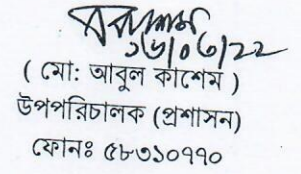 ১৬/০৩/২২
( মো: আবুল কাশেম )
উপপরিচালক (প্রশাসন)
ফোনঃ ৫৮৩১০৭৭০